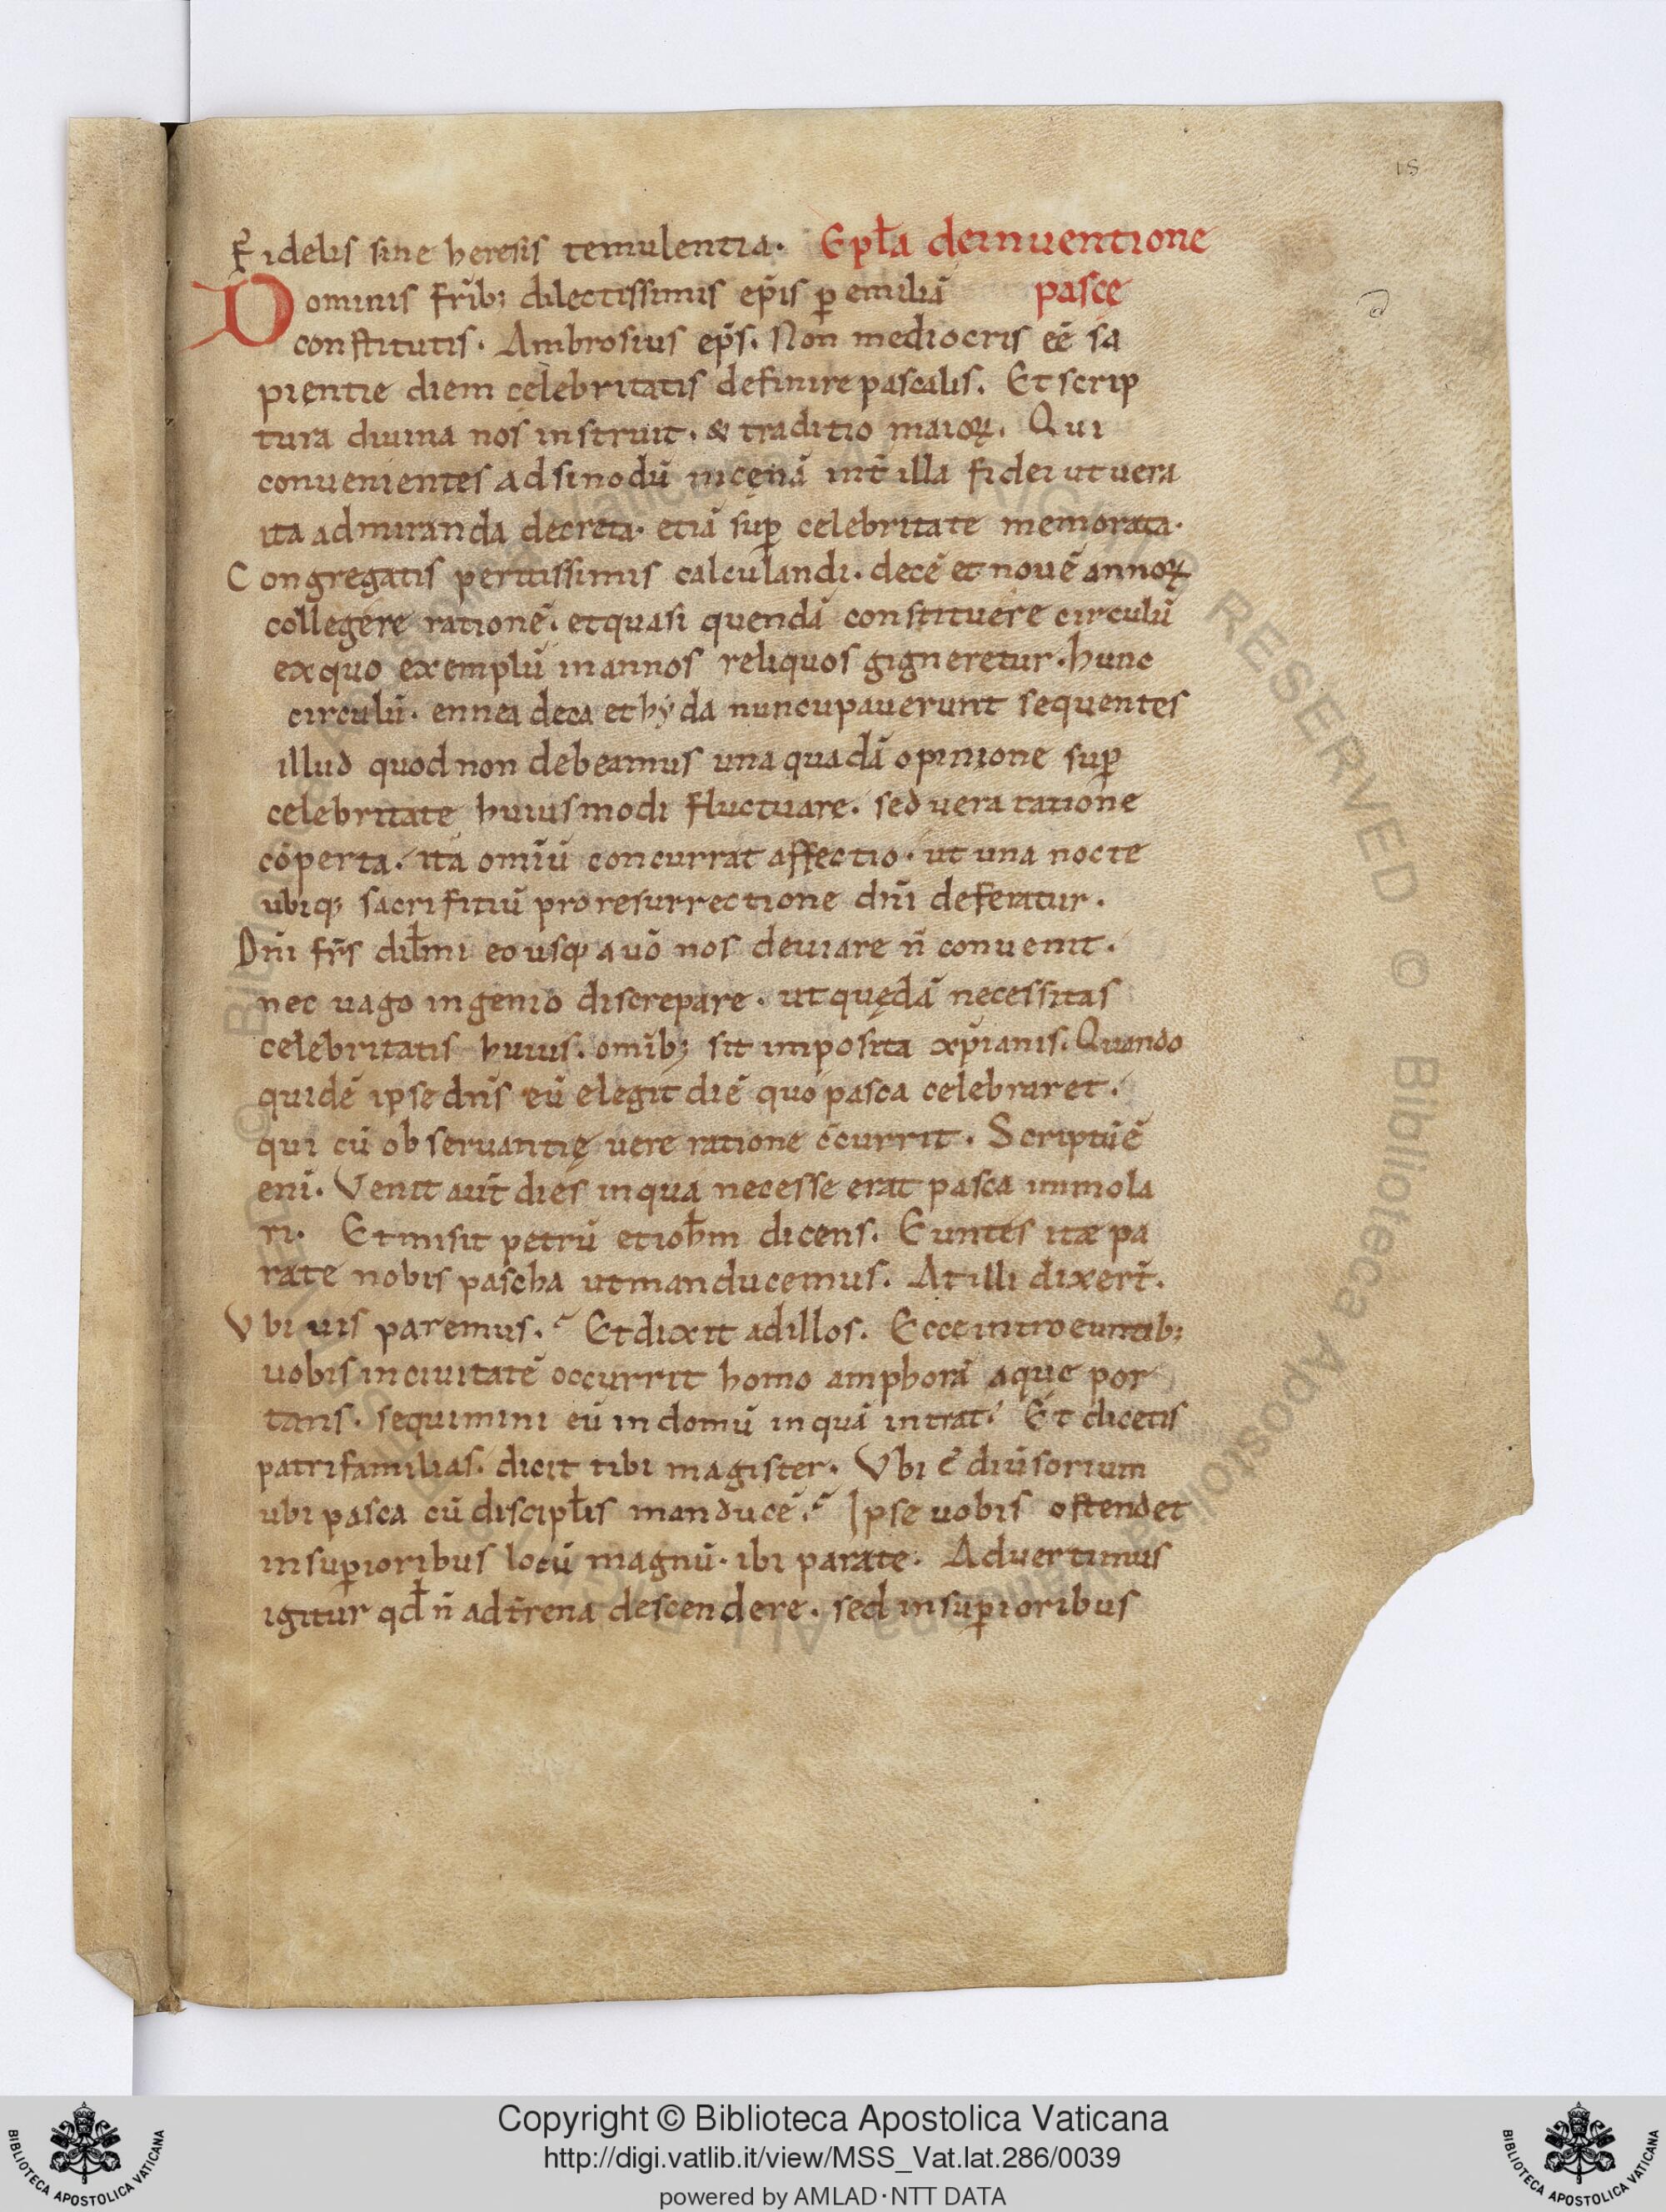 18
Fidelis sine heresis temulentia. Epła deinuentione
Dominis frīb; dilectissimis ep̄is ꝑ emiliā pasce
constitutis. Ambrosius ep̄s. Non mediocris eē sa
pientie diem celebritatis definire pascalis. Et scrip
tura diuina nos instruit. & traditio maioꝝ. Qui
conuenientes ad sinodū nicenā int̄ illa fidei ut uera
ita admiranda decreta. etiā suꝑ celebritate memorata.
Congregatis peritissimis calculandi. decē et nouē annoꝝ
collegere rationē. et quasi quendā constituere circulū
ex quo exemplū in annos reliquos gigneretur. hunc
circulū. ennea deca ethẏda nuncupauerunt sequentes
illud quod non debeamus una quadā opinione suꝑ
celebritate huiusmodi fluctuare. sed uera ratione
cōperta. ita omīū concurrat affectio. ut una nocte
ubiq; sacrifitiū pro resurrectione dn̄i deferatur.
Dn̄i fr̄s dił̄mi eo usq; a uō nos deuiare n̄ conuenit.
nec uago ingenio discrepare. ut quędā necessitas
celebritatis huius. omīb; sit imposita xp̄ianis. Quando
quidē ipse dn̄s eū elegit diē quo pasca celebraret.
qui cū obseruantię uere ratione c̄currit. Scriptū ē
eni. Venit aut̄ dies in qua necesse erat pasca immola
ri. Et misit petrū et ioħm dicens. Euntes itæ pa
rate nobis pascha ut manducemus. At illi dixer̄t.
Vbi uis paremus.? Et dixit ad illos. Ecce introeuntib;
uobis in ciuitatē occurrit homo amphorā aque por
tans. sequimini eū in domū in quā intrat. Et dicetis
patrifamilias. dicit tibi magister. Vbi ē diūsorium
ubi pasca cū discipłis manducē.? Ipse uobis ostendet
in suꝑioribus locū magnū. ibi parate. Aduertimus
igitur qd̄ n̄ ad t̄rena descendere. sed in suꝑioribus
Copyright © Biblioteca Apostolica Vaticana
http://digi.vatlib.it/view/MSS_Vat.lat.286/0039
powered by AMLAD·NTT DATA
BIBLIOTECA APOSTOLICA VATICANA
BIBLIOTECA APOSTOLICA VATICANA